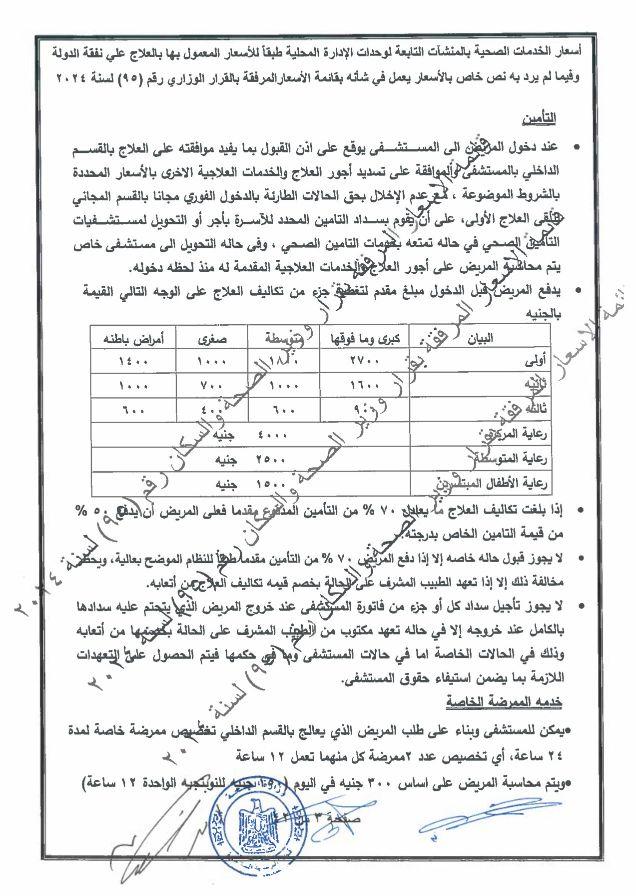 أسعار الخدمات الصحية بالمنشآت التابعة لوحدات الإدارة المحلية طبقاً للأسعار المعمول بها بالعلاج علي نفقة الدولة
وفيما لم يرد به نص خاص بالأسعار يعمل في شأنه بقائمة الأسعارالمرفقة بالقرار الوزاري رقم (٩٥) لسنة ٢٠٢٤
التأمين
• عند دخول المريض الى المستشفى يوقع على اذن القبول بما يفيد موافقته على العلاج بالقسم
الداخلي بالمستشفى والموافقة على تسديد أجور العلاج والخدمات العلاجية الاخرى بالأسعار المحددة
بالشروط الموضوعة ، مع عدم الإخلال بحق الحالات الطارئة بالدخول الفوري مجانا بالقسم المجاني
لتلقى العلاج الأولى، على أن يقوم بسداد التامين المحدد للآسرة بأجر أو التحويل لمستشفيات
التأمين الصحي في حاله تمتعه بخدمات التامين الصحي ، وفى حاله التحويل الى مستشفى خاص
يتم محاسبة المريض على أجور العلاج والخدمات العلاجية المقدمة له منذ لحظه دخوله.
• يدفع المريض قبل الدخول مبلغ مقدم لتغطية جزء من تكاليف العلاج على الوجه التالي القيمة
بالجنيه
البيان كبرى وما فوقها متوسطة صغرى أمراض باطنه
أولى ٢٧٠٠ ١٨٠٠ ١٠٠٠ ١٤٠٠
ثانيه ١٦٠٠ ١٠٠٠ ٧٠٠ ١٠٠٠
ثالثه ٩٠٠ ٦٠٠ ٤٠٠ ٦٠٠
رعاية المركزة ٤٠٠٠ جنيه
رعاية المتوسطة ٢٥٠٠ جنيه
رعاية الأطفال المبتسرين ١٥٠٠ جنيه
• إذا بلغت تكاليف العلاج ما يعادل ٧٠ % من التأمين المدفوع مقدما فعلى المريض أن يدفع ٥٠ %
من قيمة التامين الخاص بدرجته.
• لا يجوز قبول حاله خاصه إلا إذا دفع المريض ٧٠ % من التأمين مقدما طبقاً للنظام الموضح بعالية، ويحظر
مخالفة ذلك إلا إذا تعهد الطبيب المشرف على الحالة بخصم قيمه تكاليف العلاج من أتعابه.
• لا يجوز تأجيل سداد كل أو جزء من فاتورة المستشفى عند خروج المريض الذي يتحتم عليه سدادها
بالكامل عند خروجه إلا في حاله تعهد مكتوب من الطبيب المشرف على الحالة بخصمها من أتعابه
وذلك في الحالات الخاصة اما في حالات المستشفى وما في حكمها فيتم الحصول على التعهدات
اللازمة بما يضمن استيفاء حقوق المستشفى.
خدمه الممرضة الخاصة
•يمكن للمستشفى وبناء على طلب المريض الذي يعالج بالقسم الداخلي تخصيص ممرضة خاصة لمدة
٢٤ ساعة، أي تخصيص عدد ٢ممرضة كل منهما تعمل ١٢ ساعة
•ويتم محاسبة المريض على اساس ٣٠٠ جنيه في اليوم (١٥٠ جنيه للنوبتجيه الواحدة ١٢ ساعة)
صفحة ٣ من ٤٢
قائمة الاسعار المرفقة بقرار وزير الصحة والسكان رقم (٩٥) لسنة ٢٠٢٤
قائمة الاسعار المرفقة بقرار وزير الصحة والسكان رقم (٩٥) لسنة ٢٠٢٤
قائمة الاسعار المرفقة بقرار وزير الصحة والسكان رقم (٩٥) لسنة ٢٠٢٤